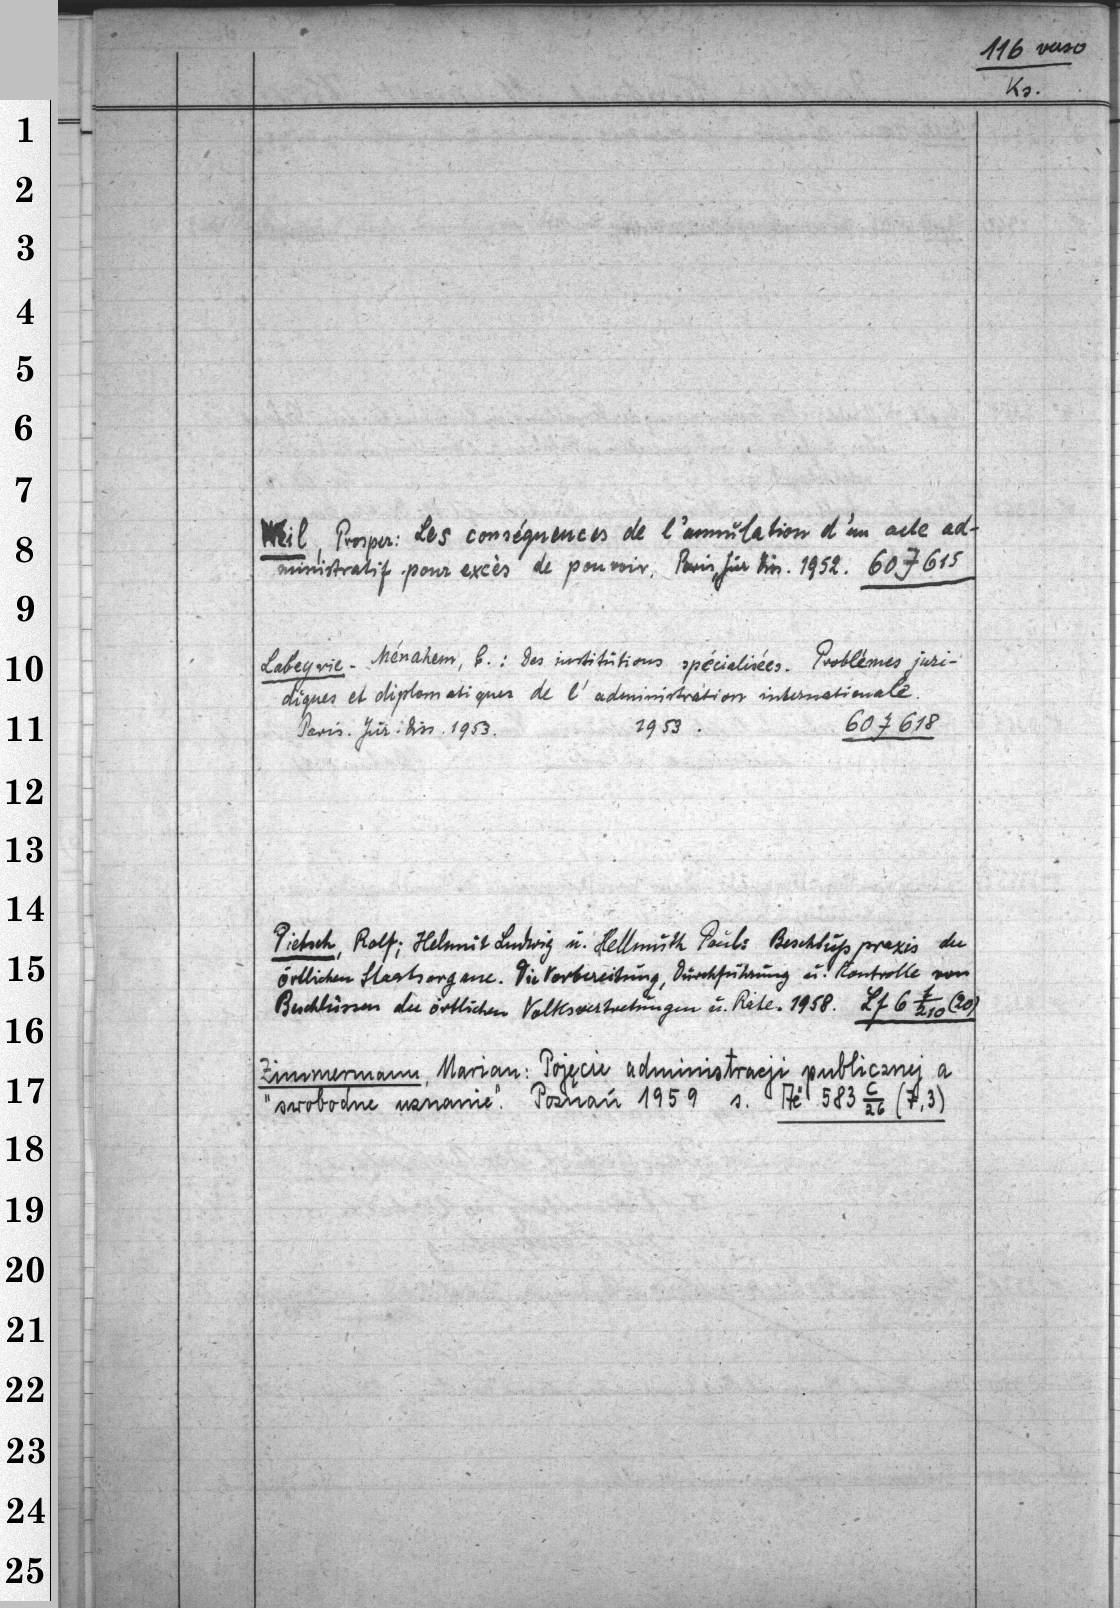 116 verso
Ks.
1
2
3
4
5
6
7
Weil, Prosper: Les conséquences de l'annulation d'un acte ad-
8
ministratif pour excès de pouvoir. Paris, Jur. Diss. 1952. 60 7 615
9
10
Labeyrie-Ménahem, C.: Des institutions spécialisées. Problèmes juri-
diques et diplomatiques de l'administration internationale.
11
Paris. Jur. Diss. 1953. 1953. 60 7 618
12
13
14
Pietsch, Rolf; Helmut Ludwig u. Hellmuth Paul: Beschlußpraxis der
15
örtlichen Staatsorgane. Die Vorbereitung, Durchführung u. Kontrolle von
Beschlüssen der örtlichen Volksvertretungen u. Räte. 1958. Lf 6 7/210 (20)
16
Zimmermann, Marian: Pojęcie administracji publicznej a
17
"swobodne uznanie". Poznań 1959 s. Ac 583 C/26 (7,3)
18
19
20
21
22
23
24
25